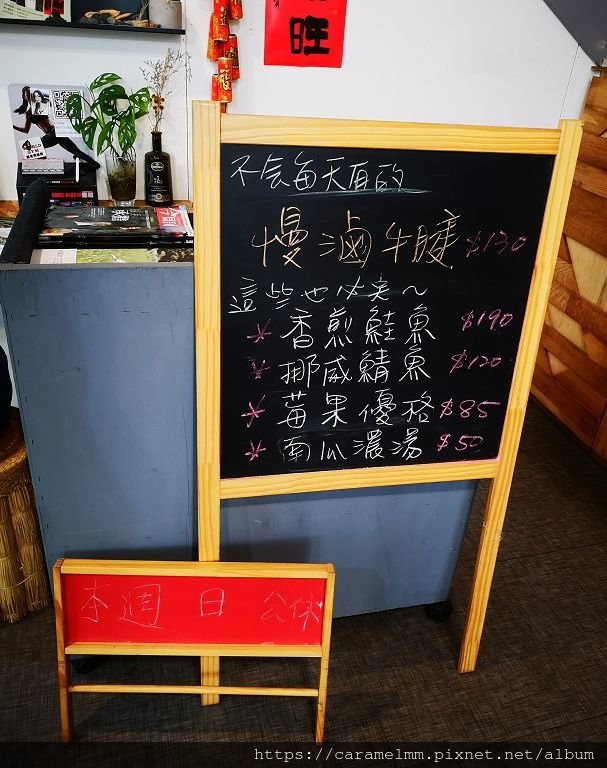 旺
不会每天有的
慢滷牛腱 $130
這些也必点~
* 香煎鮭魚 $190
* 挪威鯖魚 $120
* 莓果優格 $85
* 南瓜濃湯 $50
本週 日 公休
https://caramelmm.pixnet.net/album